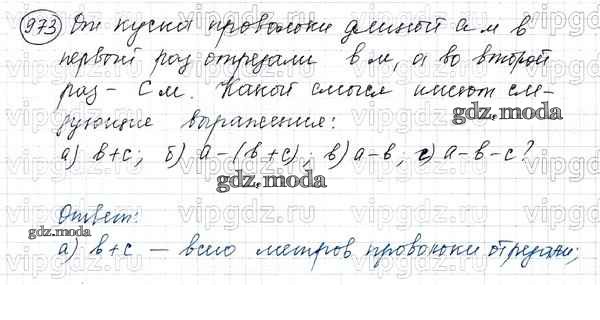 973 От куска проволоки длиной a м в
первый раз отрезали b м, а во второй
раз - c м. Какой смысл имеют сле-
дующие выражения:
а) b+c; б) a-(b+c); в) a-b, г) a-b-c?
gdz.moda
gdz.moda
Ответ:
gdz.moda
а) b+c — всего метров проволоки отрезали;
vipgdz